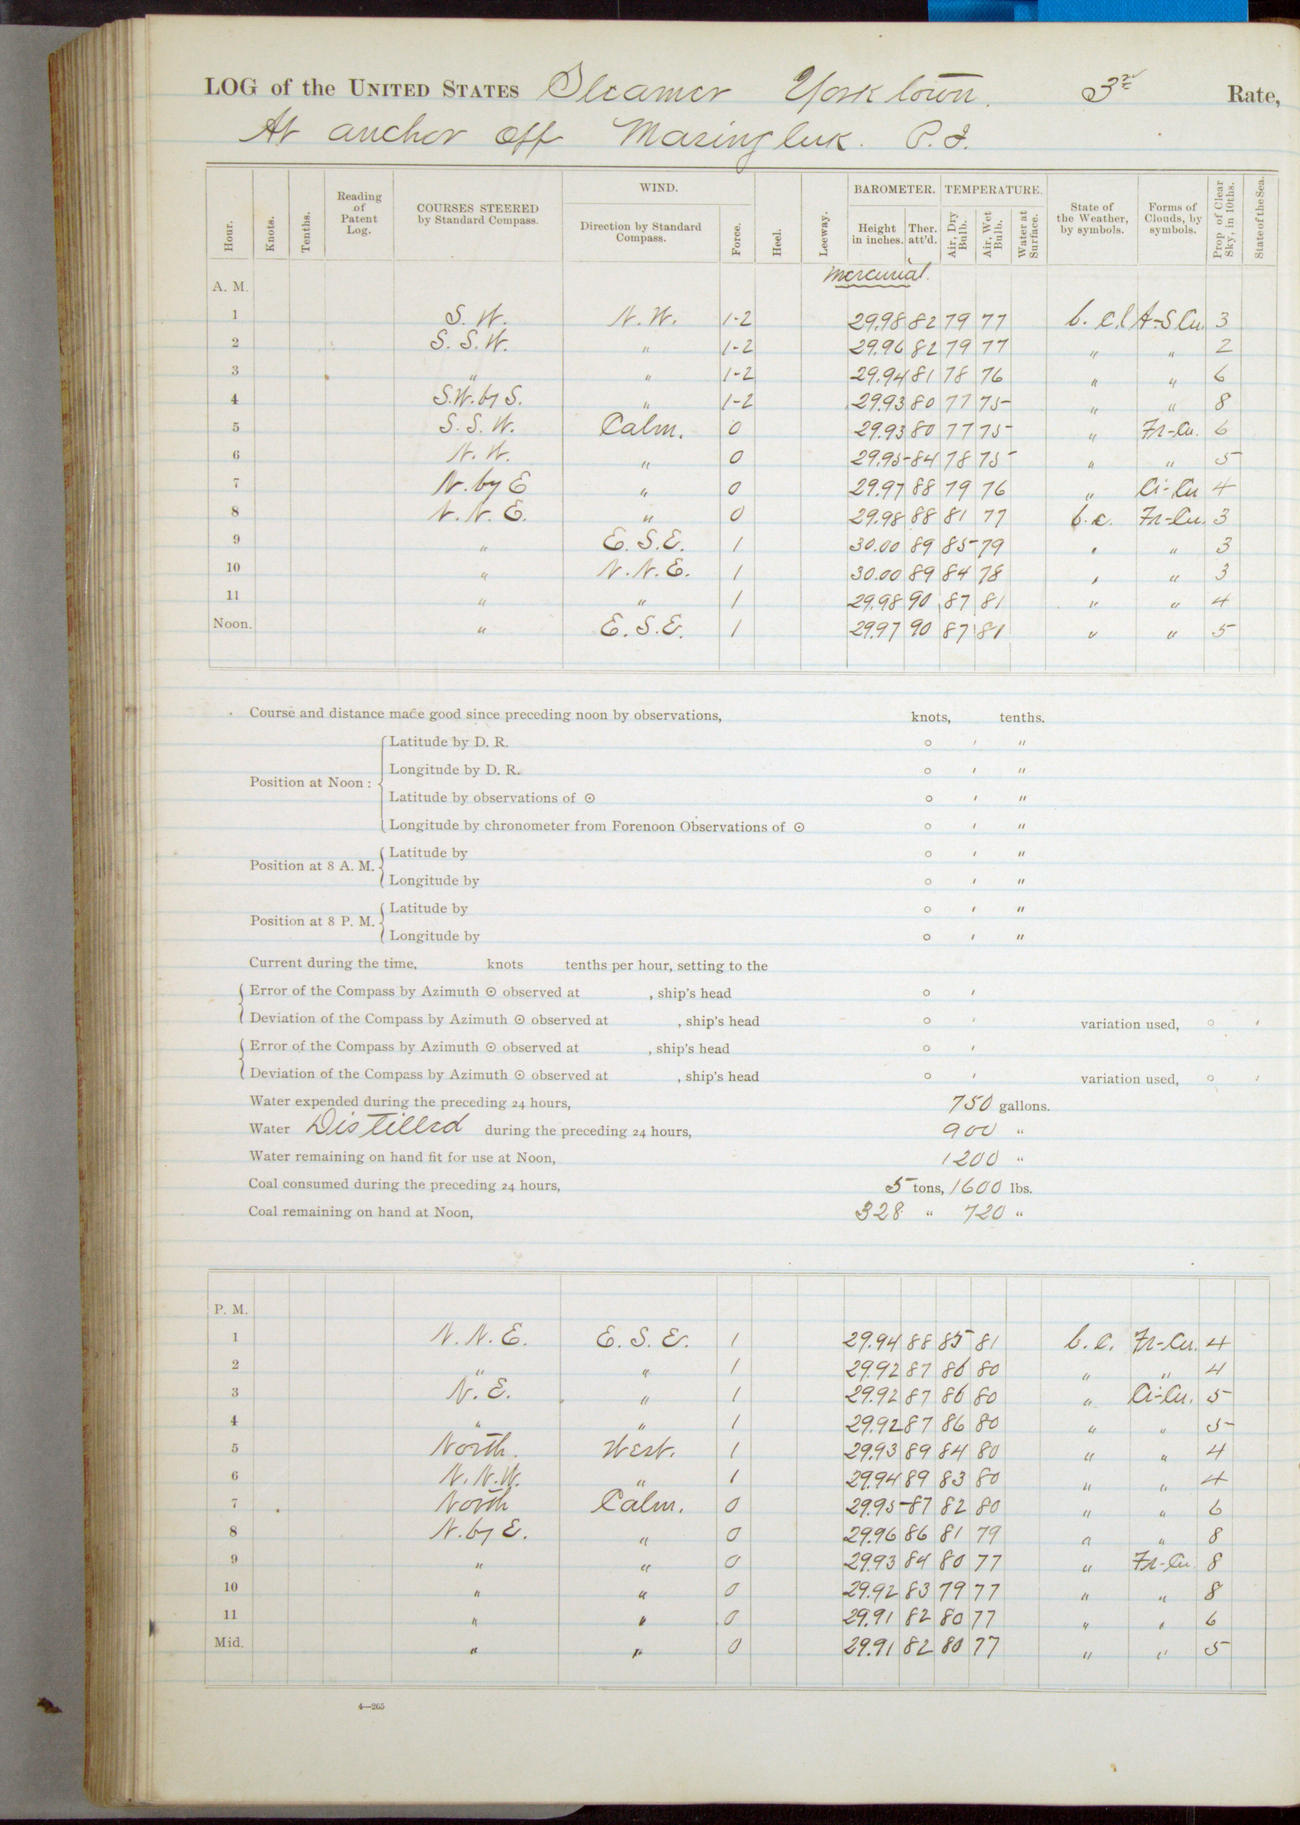 LOG of the UNITED STATES Steamer Yorktown. 3rd Rate,
At anchor off Masingluk. P.I.
Hour. Knots. Tenths. Reading of Patent Log. COURSES STEERED by Standard Compass. WIND. Direction by Standard Compass. Force. Heel. Leeway. BAROMETER. Height in inches. Ther. att'd. TEMPERATURE. Air, Dry Bulb. Air, Wet Bulb. Water at Surface. State of the Weather, by symbols. Forms of Clouds, by symbols. Prop of Clear Sky, in 10ths. State of the Sea.
Mercurial.
A. M.
1 S. W. N. W. 1-2 29.98 82 79 77 b. c. l A-S. Cu. 3
2 S. S. W. " 1-2 29.96 82 79 77 " " 2
3 " " 1-2 29.94 81 78 76 " " 6
4 S.W. by S. " 1-2 29.93 80 77 75 " " 8
5 S. S. W. Calm. 0 29.93 80 77 75 " Fr-Cu. 6
6 N. W. " 0 29.95 84 78 75 " " 5
7 N. by E " 0 29.97 88 79 76 " Ci-Cu 4
8 N. N. E. " 0 29.98 88 81 77 b. c. Fr-Cu. 3
9 " E. S. E. 1 30.00 89 85 79 " " 3
10 " N. N. E. 1 30.00 89 84 78 " " 3
11 " " 1 29.98 90 87 81 " " 4
Noon. " E. S. E. 1 29.97 90 87 81 " " 5
Course and distance made good since preceding noon by observations, knots, tenths.
Position at Noon: Latitude by D. R. ° ′ ″
Longitude by D. R. ° ′ ″
Latitude by observations of ⊙ ° ′ ″
Longitude by chronometer from Forenoon Observations of ⊙ ° ′ ″
Position at 8 A. M. Latitude by ° ′ ″
Longitude by ° ′ ″
Position at 8 P. M. Latitude by ° ′ ″
Longitude by ° ′ ″
Current during the time, knots tenths per hour, setting to the
Error of the Compass by Azimuth ⊙ observed at , ship's head ° ′
Deviation of the Compass by Azimuth ⊙ observed at , ship's head ° ′ variation used, ° ′
Error of the Compass by Azimuth ⊙ observed at , ship's head ° ′
Deviation of the Compass by Azimuth ⊙ observed at , ship's head ° ′ variation used, ° ′
Water expended during the preceding 24 hours, 750 gallons.
Water Distilled during the preceding 24 hours, 900 "
Water remaining on hand fit for use at Noon, 1200 "
Coal consumed during the preceding 24 hours, 5 tons, 1600 lbs.
Coal remaining on hand at Noon, 328 " 720 "
P. M.
1 N. N. E. E. S. E. 1 29.94 88 85 81 b. c. Fr-Cu. 4
2 " " 1 29.92 87 86 80 " " 4
3 N. E. " 1 29.92 87 86 80 " Ci-Cu. 5
4 " " 1 29.92 87 86 80 " " 5
5 North. West. 1 29.93 89 84 80 " " 4
6 N. N. W. " 1 29.94 89 83 80 " " 4
7 North Calm. 0 29.95 87 82 80 " " 6
8 N. by E. " 0 29.96 86 81 79 " " 8
9 " " 0 29.93 84 80 77 " Fr-Cu 8
10 " " 0 29.92 83 79 77 " " 8
11 " " 0 29.91 82 80 77 " " 6
Mid. " " 0 29.91 82 80 77 " " 5
4—265